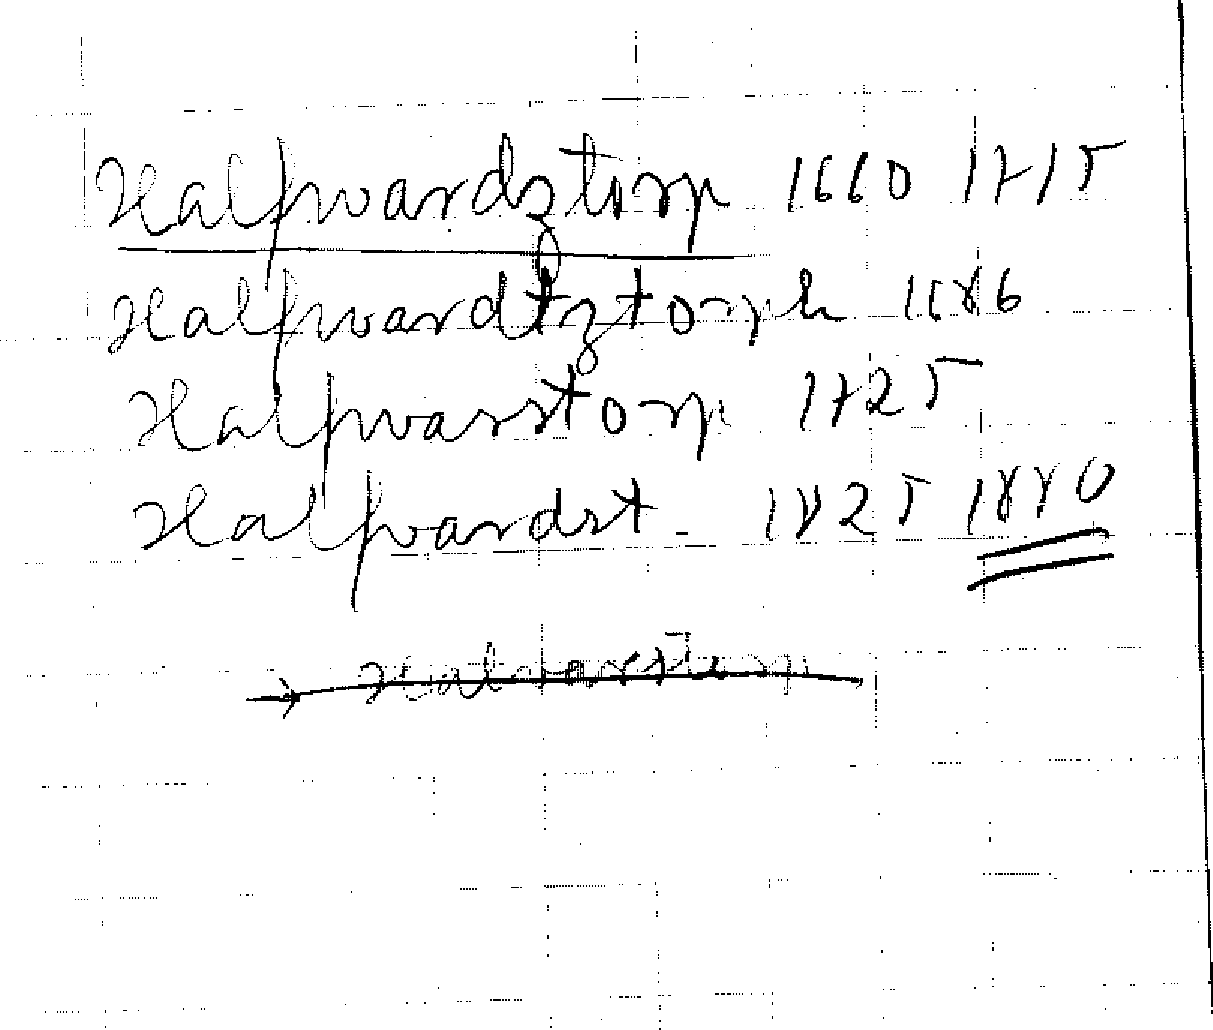 Halfwardztorp 1660 1715
Halfwardtztorph 1686
Halfwarstorp 1725
Halfwardst - 1825 1880
→ Halvarstorp